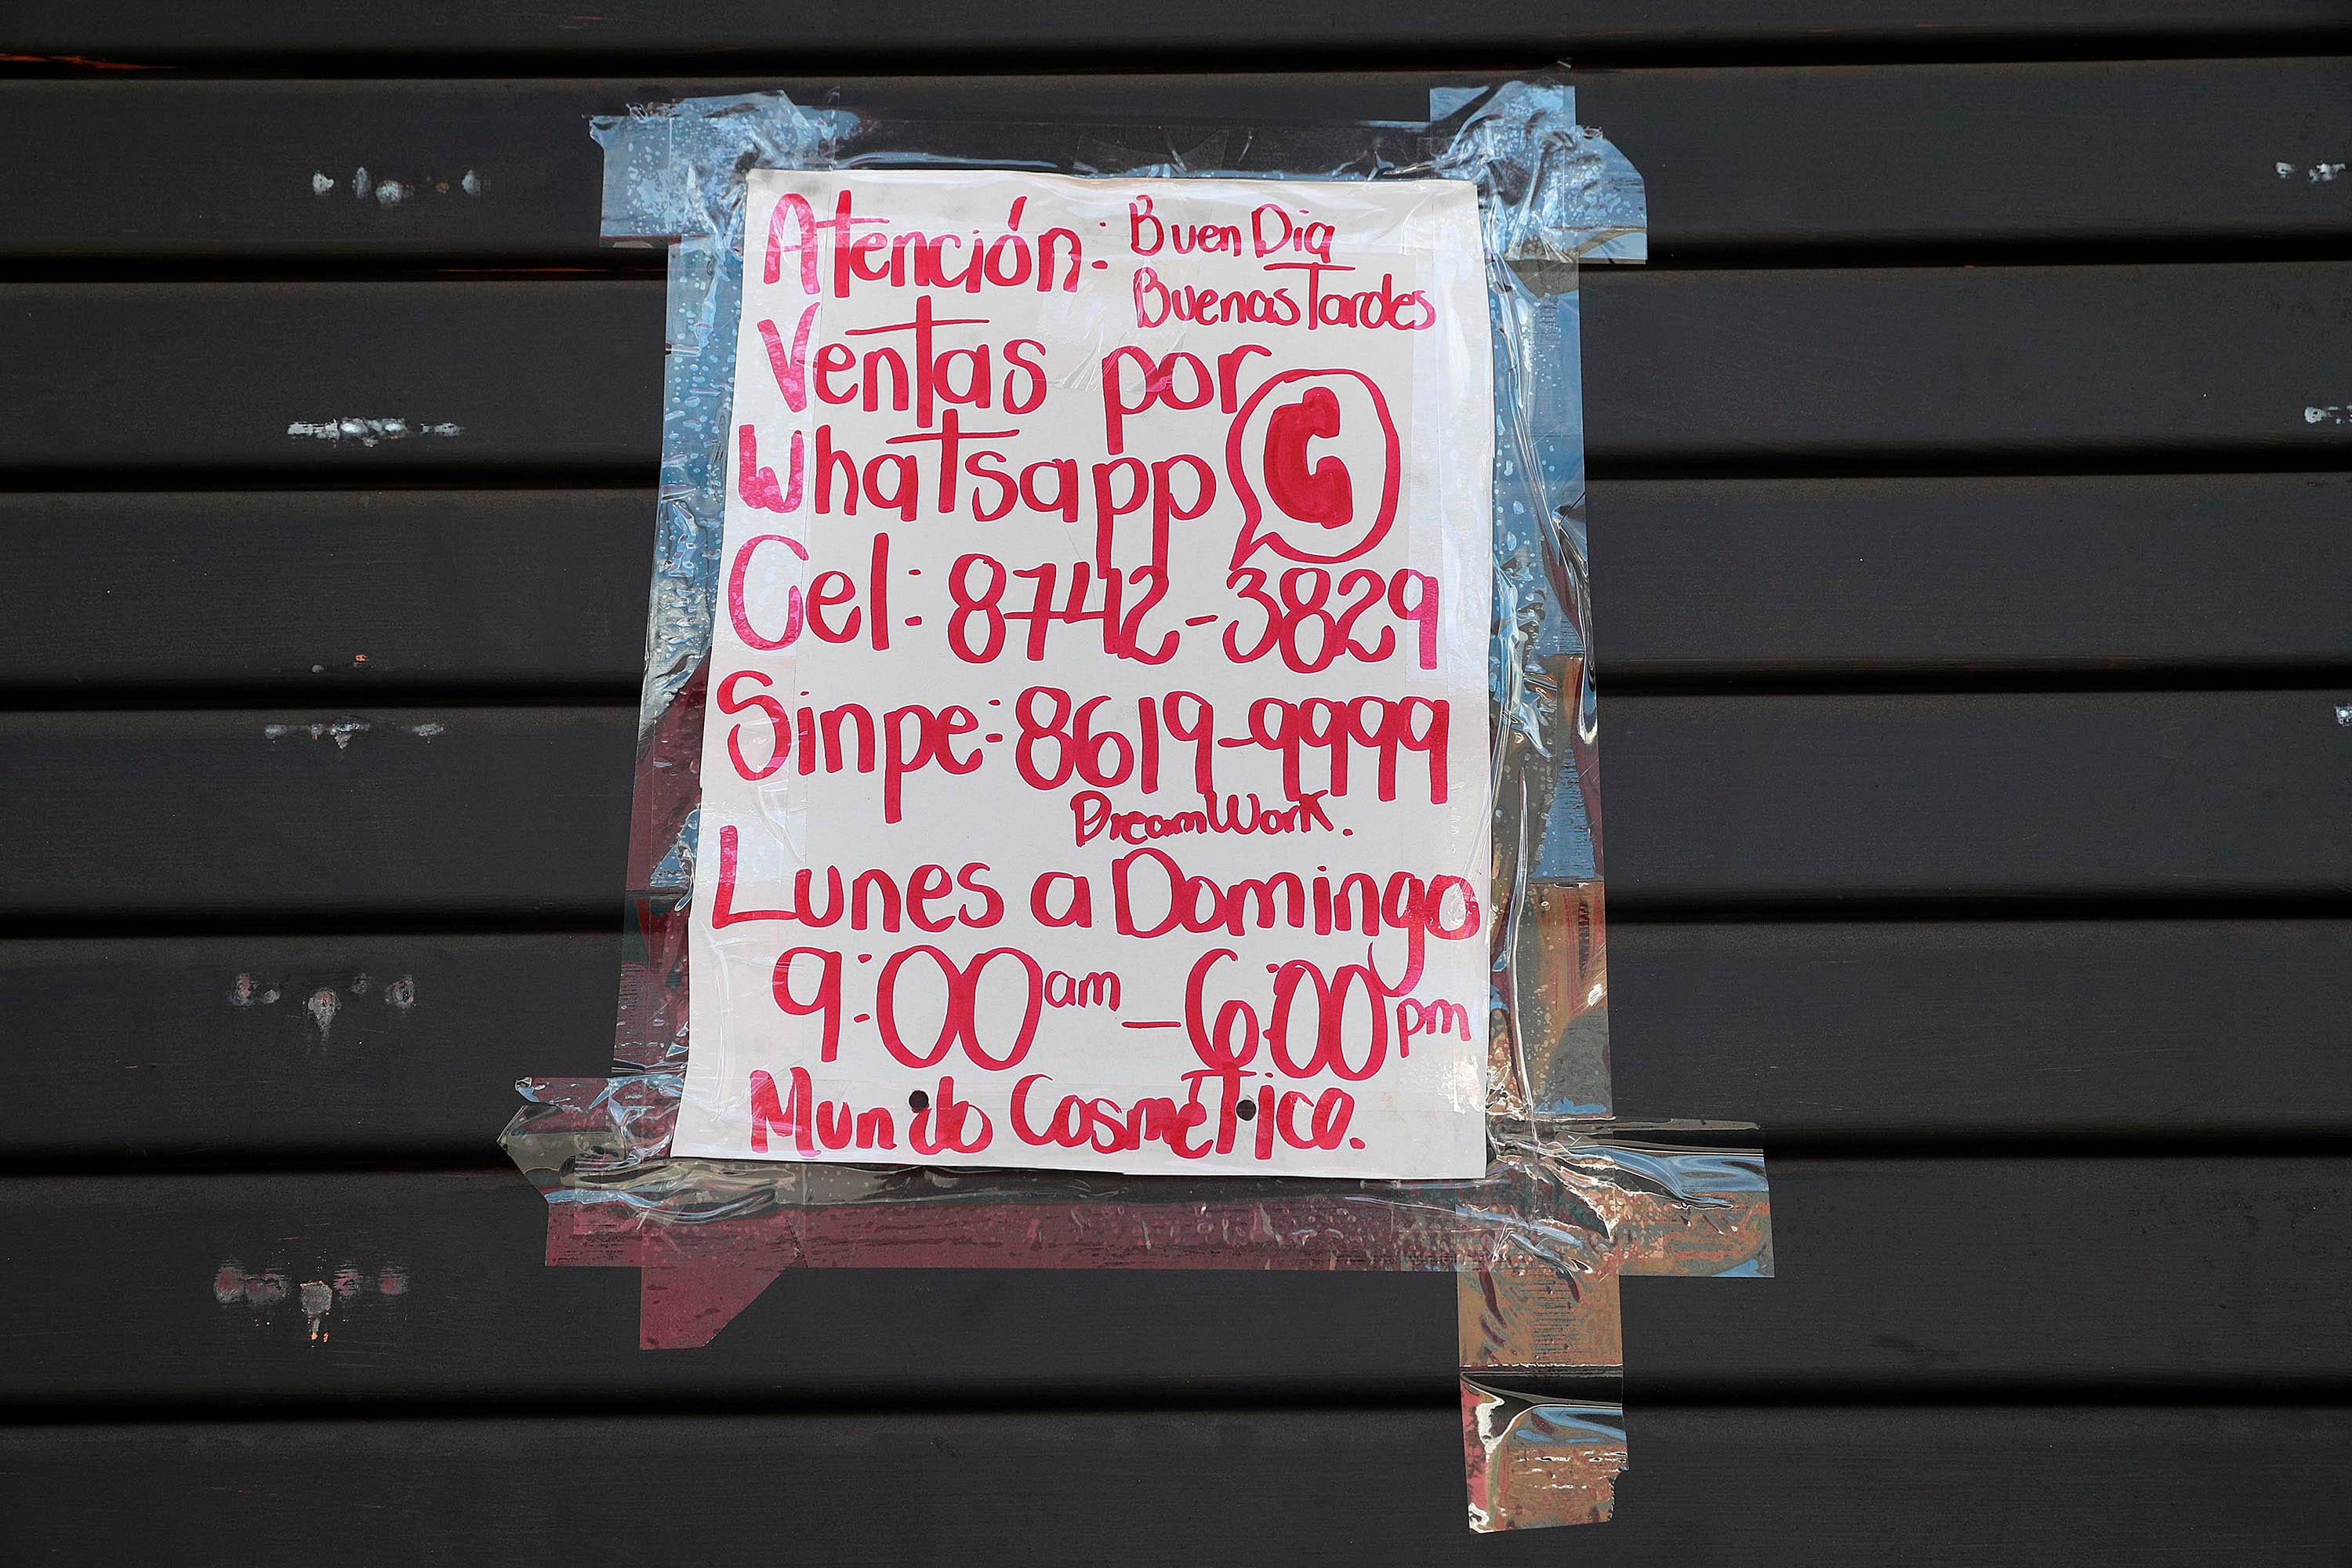 Atención: Buen Dia
Buenas Tardes
Ventas por
Whatsapp
Cel: 8742-3829
Sinpe: 8619-9999
DreamWork.
Lunes a Domingo
9:00 am - 6:00 pm
Mundo Cosmetico.